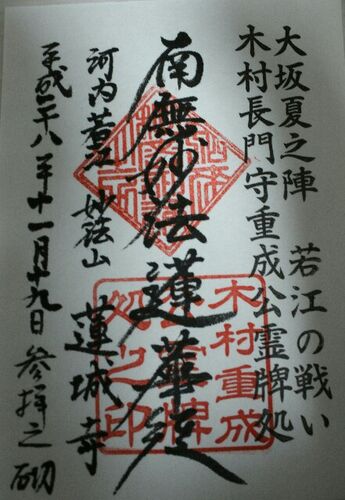 大坂夏之陣 若江の戦い
木村長門守重成公霊牌処
南無妙法蓮華経
木村重成
公霊牌
処之印
河内若江 妙法山 蓮城寺
平成二十八年十一月十九日 参拝之砌